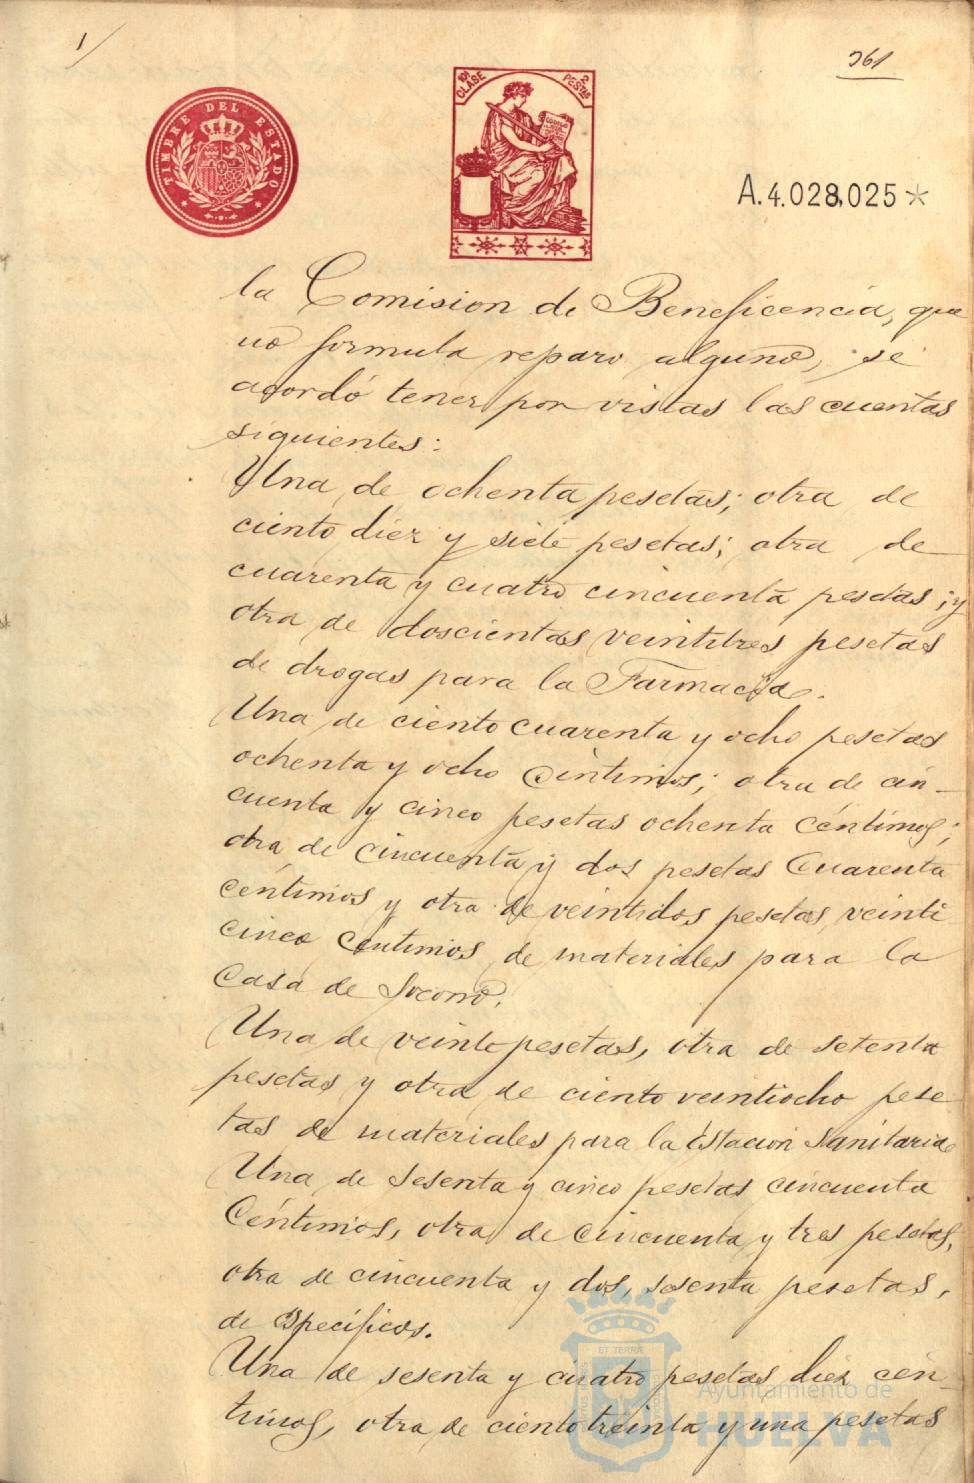 1/
361
TIMBRE DEL ESTADO
10ª CLASE 2 PESTAS
A.4.028,025*
la Comision de Beneficencia, que
no formula reparo alguno, se
acordó tener por vistas las cuentas
siguientes:
Una de ochenta pesetas; otra de
ciento diez y siete pesetas; otra de
cuarenta y cuatro cincuenta pesetas; y
otra de doscientas veintitres pesetas
de drogas para la Farmacia.
Una de ciento cuarenta y ocho pesetas
ochenta y ocho céntimos; otra de cin-
cuenta y cinco pesetas ochenta céntimos;
otra de cincuenta y dos pesetas cuarenta
céntimos y otra de veintidos pesetas veinti
cinco céntimos de materiales para la
Casa de Socorro.
Una de veinte pesetas, otra de setenta
pesetas y otra de ciento veintiocho pese
tas de materiales para la Estacion Sanitaria
Una de sesenta y cinco pesetas cincuenta
Céntimos, otra de cincuenta y tres pesetas,
otra de cincuenta y dos, sesenta pesetas,
de específicos.
Una de sesenta y cuatro pesetas diez cén-
timos, otra de ciento treinta y una pesetas
ET TERRÆ
Ayuntamiento de
HUELVA